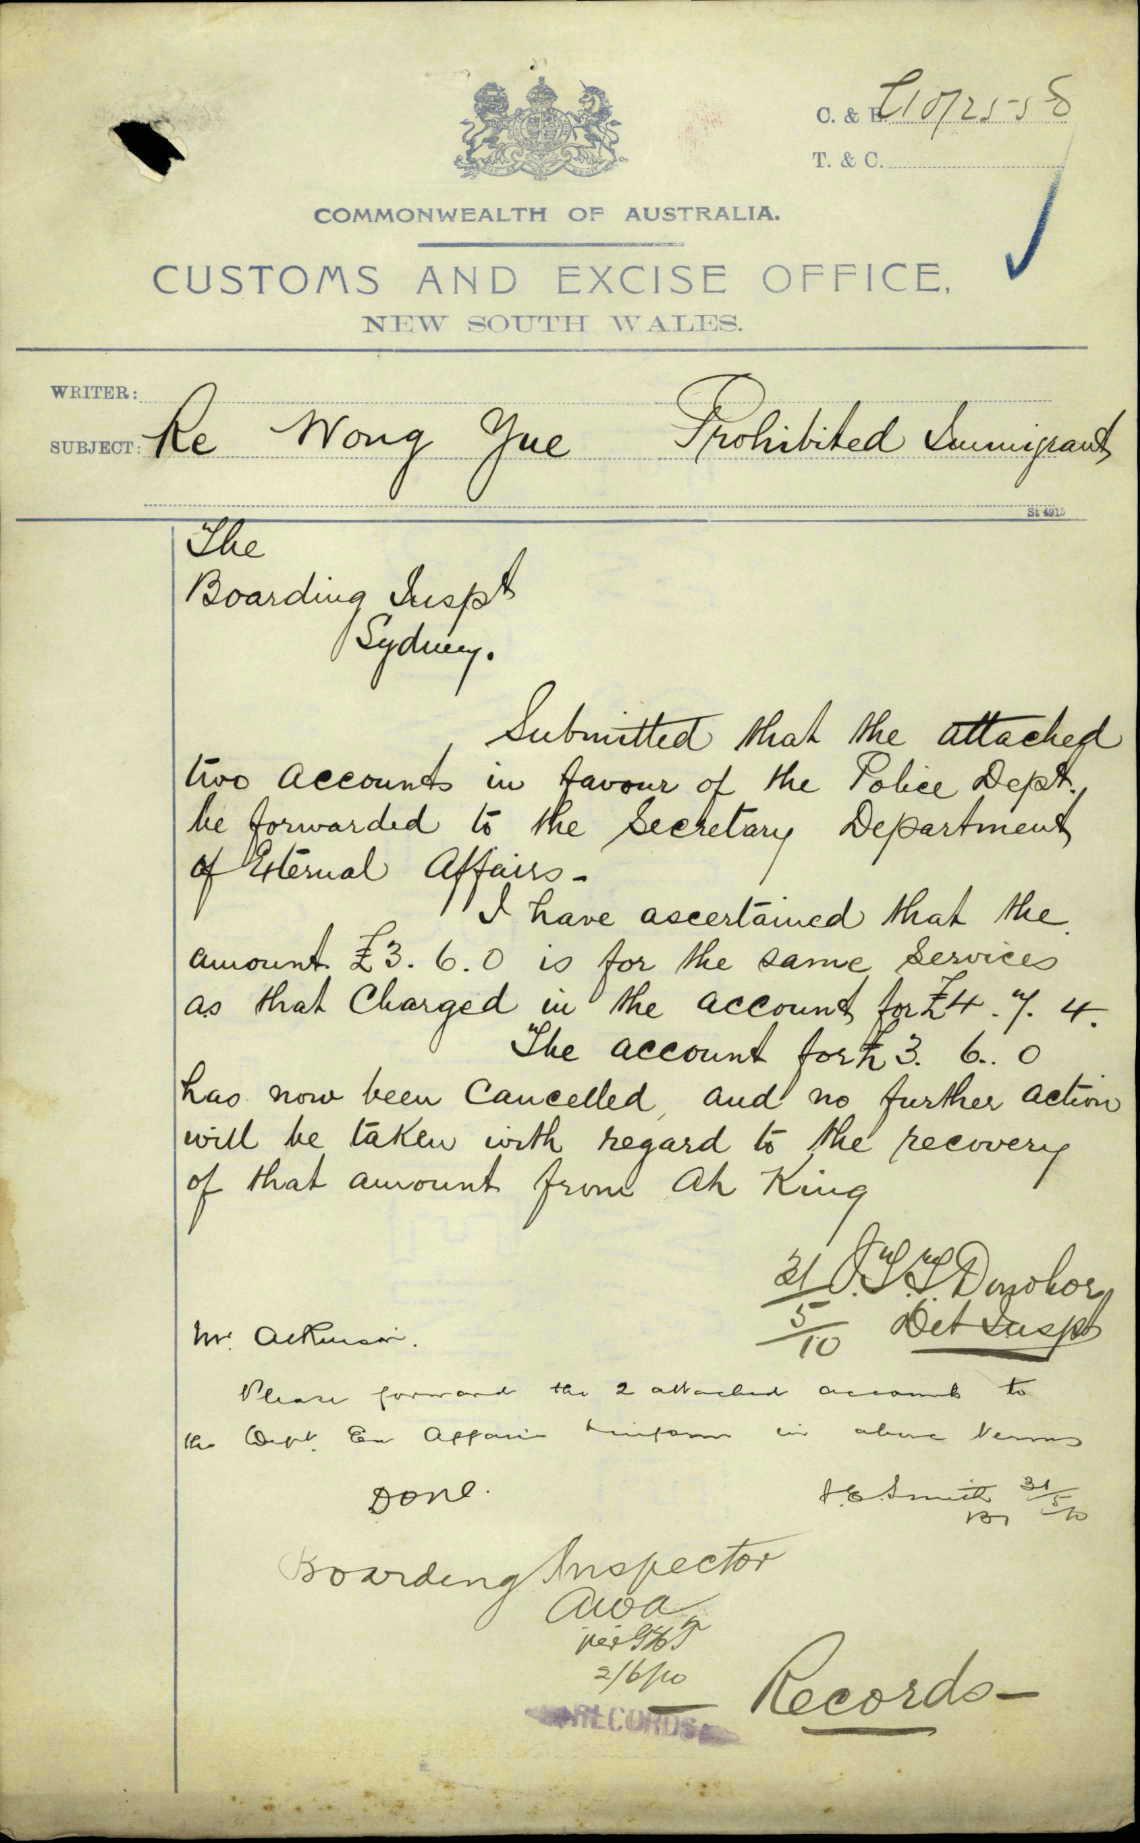 C. & E. C10/25558
T. & C.
COMMONWEALTH OF AUSTRALIA.
CUSTOMS AND EXCISE OFFICE,
NEW SOUTH WALES.
WRITER:
SUBJECT: Re Wong Yue Prohibited Immigrant
St 4915
The
Boarding Inspt
Sydney.
Submitted that the attached
two accounts in favour of the Police Dept.
be forwarded to the Secretary Department
of External Affairs -
I have ascertained that the
amount £3. 6. 0 is for the same services
as that Charged in the account for £4. 7. 4.
The account for £3. 6. 0
has now been cancelled, and no further action
will be taken with regard to the recovery
of that amount from Ah King
31/5/10 J.T.T. Donohoe
Det Inspt
Mr. Atkinson.
Please forward the 2 attached accounts to
the Dept. Ex Affairs & inform in above terms
Done.
J.E. Smith 31/5/10
BI
Boarding Inspector
AWA
per
2/6/10
Records -
RECORDS